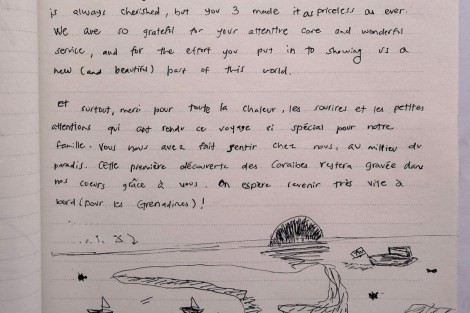 is always cherished, but you 3 made it as priceless as ever.
We are so grateful for your attentive care and wonderful
service, and for the effort you put in to showing us a
new (and beautiful) part of this world.
Et surtout, merci pour toute la chaleur, les sourires et les petites
attentions qui ont rendu ce voyage si spécial pour notre
famille. Vous nous avez fait sentir chez nous, au milieu du
paradis. Cette première découverte des Caraïbes restera gravée dans
nos coeurs grâce à vous. On espère revenir très vite à
bord (pour les Grenadines) !